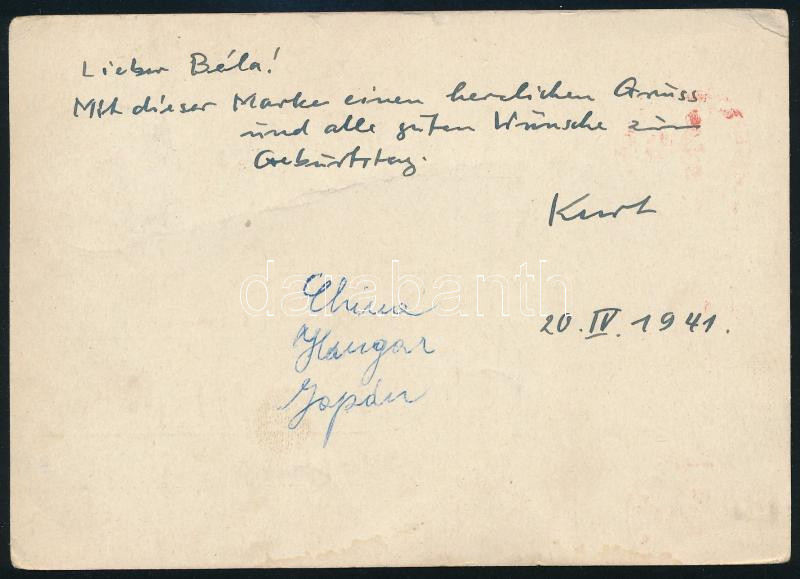 Lieber Béla!
Mit dieser Marke einen herzlichen Gruss
und alle guten Wünsche zum
Geburtstag.
Kurt
darabanth
China
20. IV. 1941.
Hangar
Japán